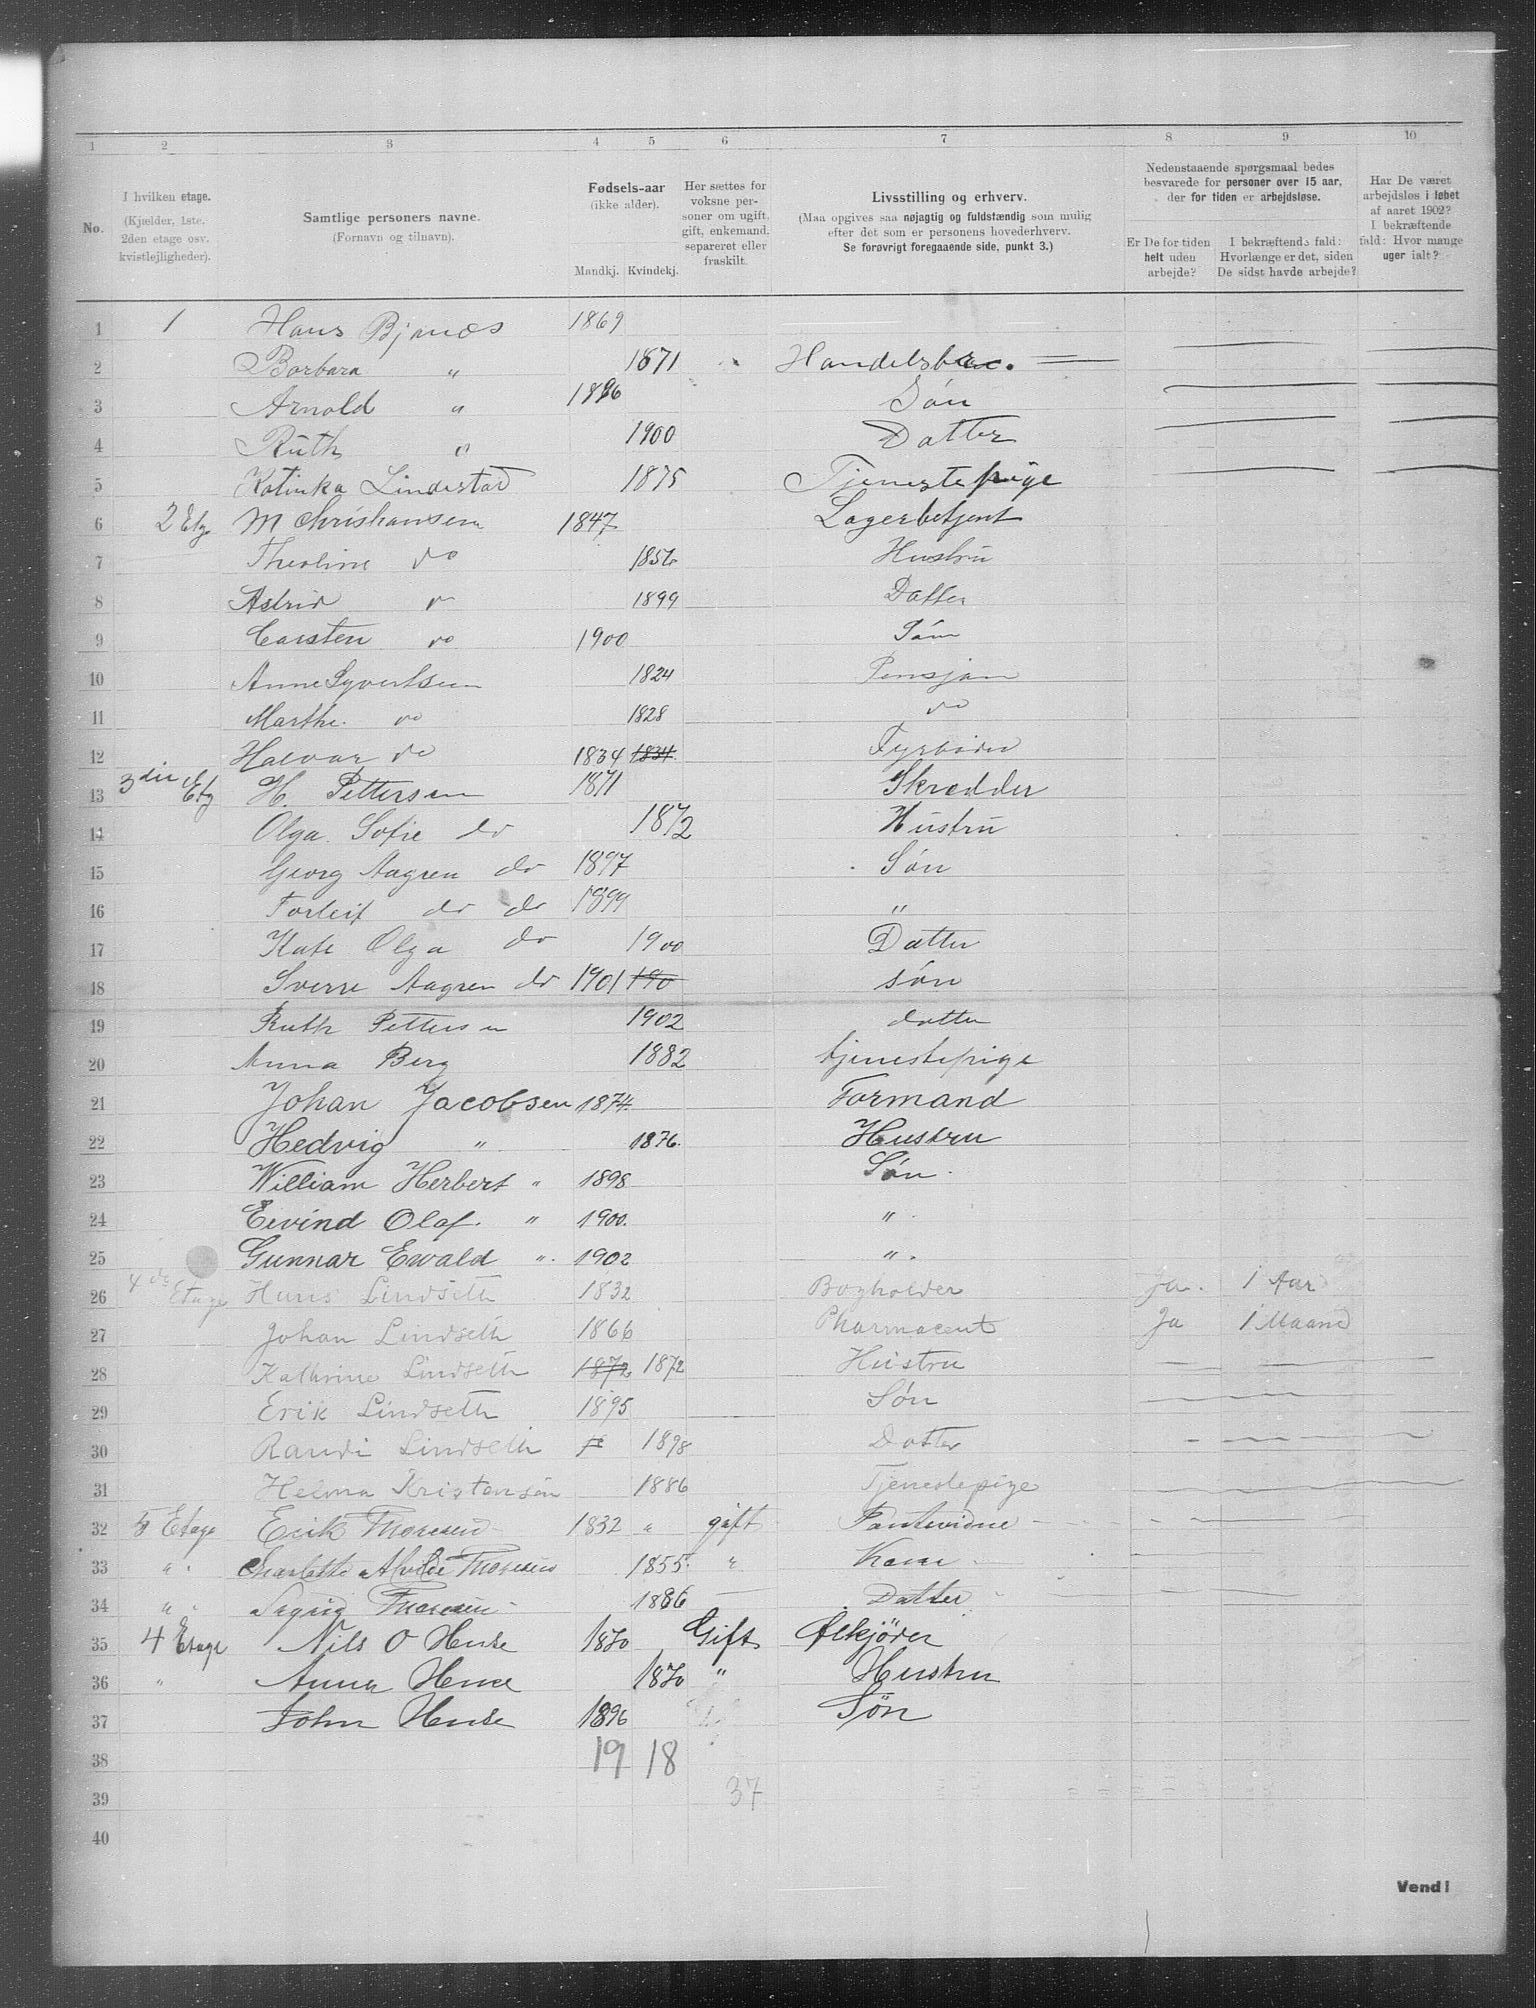 1 2 3 4 5 6 7 8 9 10
No.
I hvilken etage.
(Kjælder, 1ste.
2den etage osv.
kvistlejligheder).
Samtlige personers navne.
(Fornavn og tilnavn).
Fødsels-aar
(ikke alder).
Mandkj. Kvindekj.
Her sættes for
voksne per-
soner om ugift,
gift, enkemand,
separeret eller
fraskilt.
Livsstilling og erhverv.
(Maa opgives saa nøjagtig og fuldstændig som mulig
efter det som er personens hovederhverv.
Se forøvrigt foregaaende side, punkt 3.)
Nedenstaaende spørgsmaal bedes
besvarede for personer over 15 aar,
der for tiden er arbejdsløse.
Er De for tiden
helt uden
arbejde?
I bekræftende fald:
Hvorlænge er det, siden
De sidst havde arbejde?
Har De været
arbejdsløs i løbet
af aaret 1902?
I bekræftende
fald: Hvor mange
uger ialt?
1 1 Hans Bjanæs 1869
2 Borbara " 1871
3 Arnold " 1896 Søn
4 Ruth " 1900 Datter
5 Kotinka Lindestad 1875 Tjenestepige
6 2 Etg M Christiansen 1847 Lagerbetjent
7 Theoline do Hustru
8 Astrid do 1899 Datter
9 Carsten do 1900 Søn
10 Anne Syvertsen 1824 Pensjon
11 Marthe do 1828 do
12 Halvar do 1834 1834 Fyrbøder
13 3die Etg H. Pettersen 1871 Skrædder
14 Olga Sofie do 1872 Hustru
15 Georg Aagren do 1897 Søn
16 Torleif do do 1899 "
17 Kate Olga do 1900 Datter
18 Sverre Aagren do 1901 190 søn
19 Ruth Pettersen 1902 datter
20 Anna Berg 1882 tjenestepige
21 Johan Jacobsen 1874. Formand
22 Hedvig " 1876. Hustru
23 William Herbert " 1898 Søn.
24 Eivind Olaf. " 1900. " .
25 Gunnar Ewald " . 1902 " .
26 4de Etage Hans Lindseth 1832 Bogholder Ja. 1 Aar
27 Johan Lindseth 1866 Pharmaceut Ja 1 Maaned
28 Kathrine Lindseth 1872 1872 Hustru
29 Erik Lindseth 1895 Søn
30 Randi Lindseth 1898 Datter
31 Helma Kristensen 1886 Tjenestepige
32 5 Etage Erik Thoresen 1832 " gift
33 " . Charlotte Alvilde Thoresen 1855. " Kone
34 " " Sigrid Thoresen 1886 Datter
35 4 Etage Nils O Huse 1870 Gift Ølkjører
36 " Anna Huse 1870 " Hustru
37 John Huse 1896 Søn
38 19 18
39 37
40
Vend!